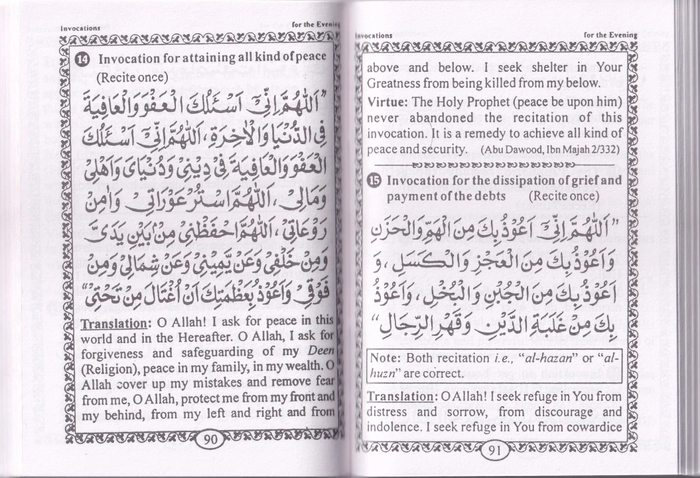 Invocations for the Evening
14 Invocation for attaining all kind of peace
(Recite once)
”اَللّٰهُمَّ اِنِّیْ اَسْئَلُكَ الْعَفْوَ وَالْعَافِيَةَ
فِی الدُّنْيَا وَالْاٰخِرَةِ، اَللّٰهُمَّ اِنِّیْ اَسْئَلُكَ
الْعَفْوَ وَالْعَافِيَةَ فِیْ دِيْنِیْ وَدُنْيَایَ وَاَهْلِیْ
وَمَالِیْ، اَللّٰهُمَّ اسْتُرْ عَوْرَاتِیْ وَاٰمِنْ
رَوْعَاتِیْ، اَللّٰهُمَّ احْفَظْنِیْ مِنْ بَيْنِ يَدَیَّ
وَمِنْ خَلْفِیْ وَعَنْ يَّمِيْنِیْ وَعَنْ شِمَالِیْ وَمِنْ
فَوْقِیْ وَاَعُوْذُ بِعَظَمَتِكَ اَنْ اُغْتَالَ مِنْ تَحْتِیْ“
Translation: O Allah! I ask for peace in this
world and in the Hereafter. O Allah, I ask for
forgiveness and safeguarding of my Deen
(Religion), peace in my family, in my wealth. O
Allah cover up my mistakes and remove fear
from me, O Allah, protect me from my front and
my behind, from my left and right and from
90
Invocations for the Evening
above and below. I seek shelter in Your
Greatness from being killed from my below.
Virtue: The Holy Prophet (peace be upon him)
never abandoned the recitation of this
invocation. It is a remedy to achieve all kind of
peace and security. (Abu Dawood, Ibn Majah 2/332)
15 Invocation for the dissipation of grief and
payment of the debts (Recite once)
”اَللّٰهُمَّ اِنِّیْ اَعُوْذُ بِكَ مِنَ الْهَمِّ وَالْحَزَنِ
وَاَعُوْذُ بِكَ مِنَ الْعَجْزِ وَالْكَسَلِ، وَ
اَعُوْذُ بِكَ مِنَ الْجُبْنِ وَالْبُخْلِ، وَاَعُوْذُ
بِكَ مِنْ غَلَبَةِ الدَّيْنِ وَقَهْرِ الرِّجَالِ“
Note: Both recitation i.e., “al-hazan” or “al-
huzn” are correct.
Translation: O Allah! I seek refuge in You from
distress and sorrow, from discourage and
indolence. I seek refuge in You from cowardice
91